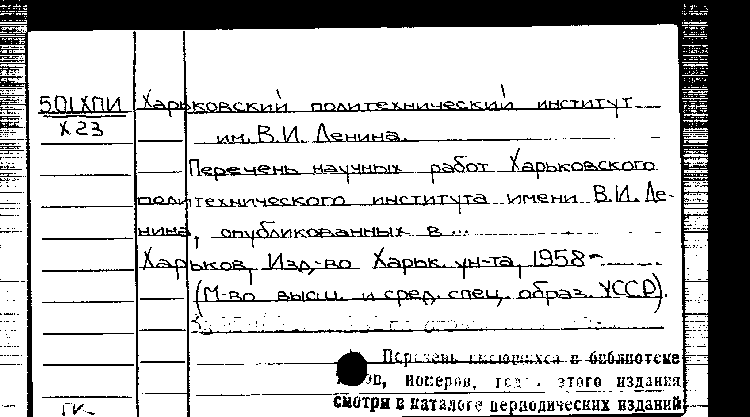 501ХПИ Харьковский политехнический институт
Х23 им. В.И. Ленина.
Перечень научных работ Харьковского
политехнического института имени В.И. Ле-
нина, опубликованных в ...
Харьков, Изд-во Харьк. ун-та, 1958-
(М-во высш. и сред. спец. образ. УССР).
Перечень имеющихся в библиотеке
номеров, этого издания
смотри в каталоге периодических изданий